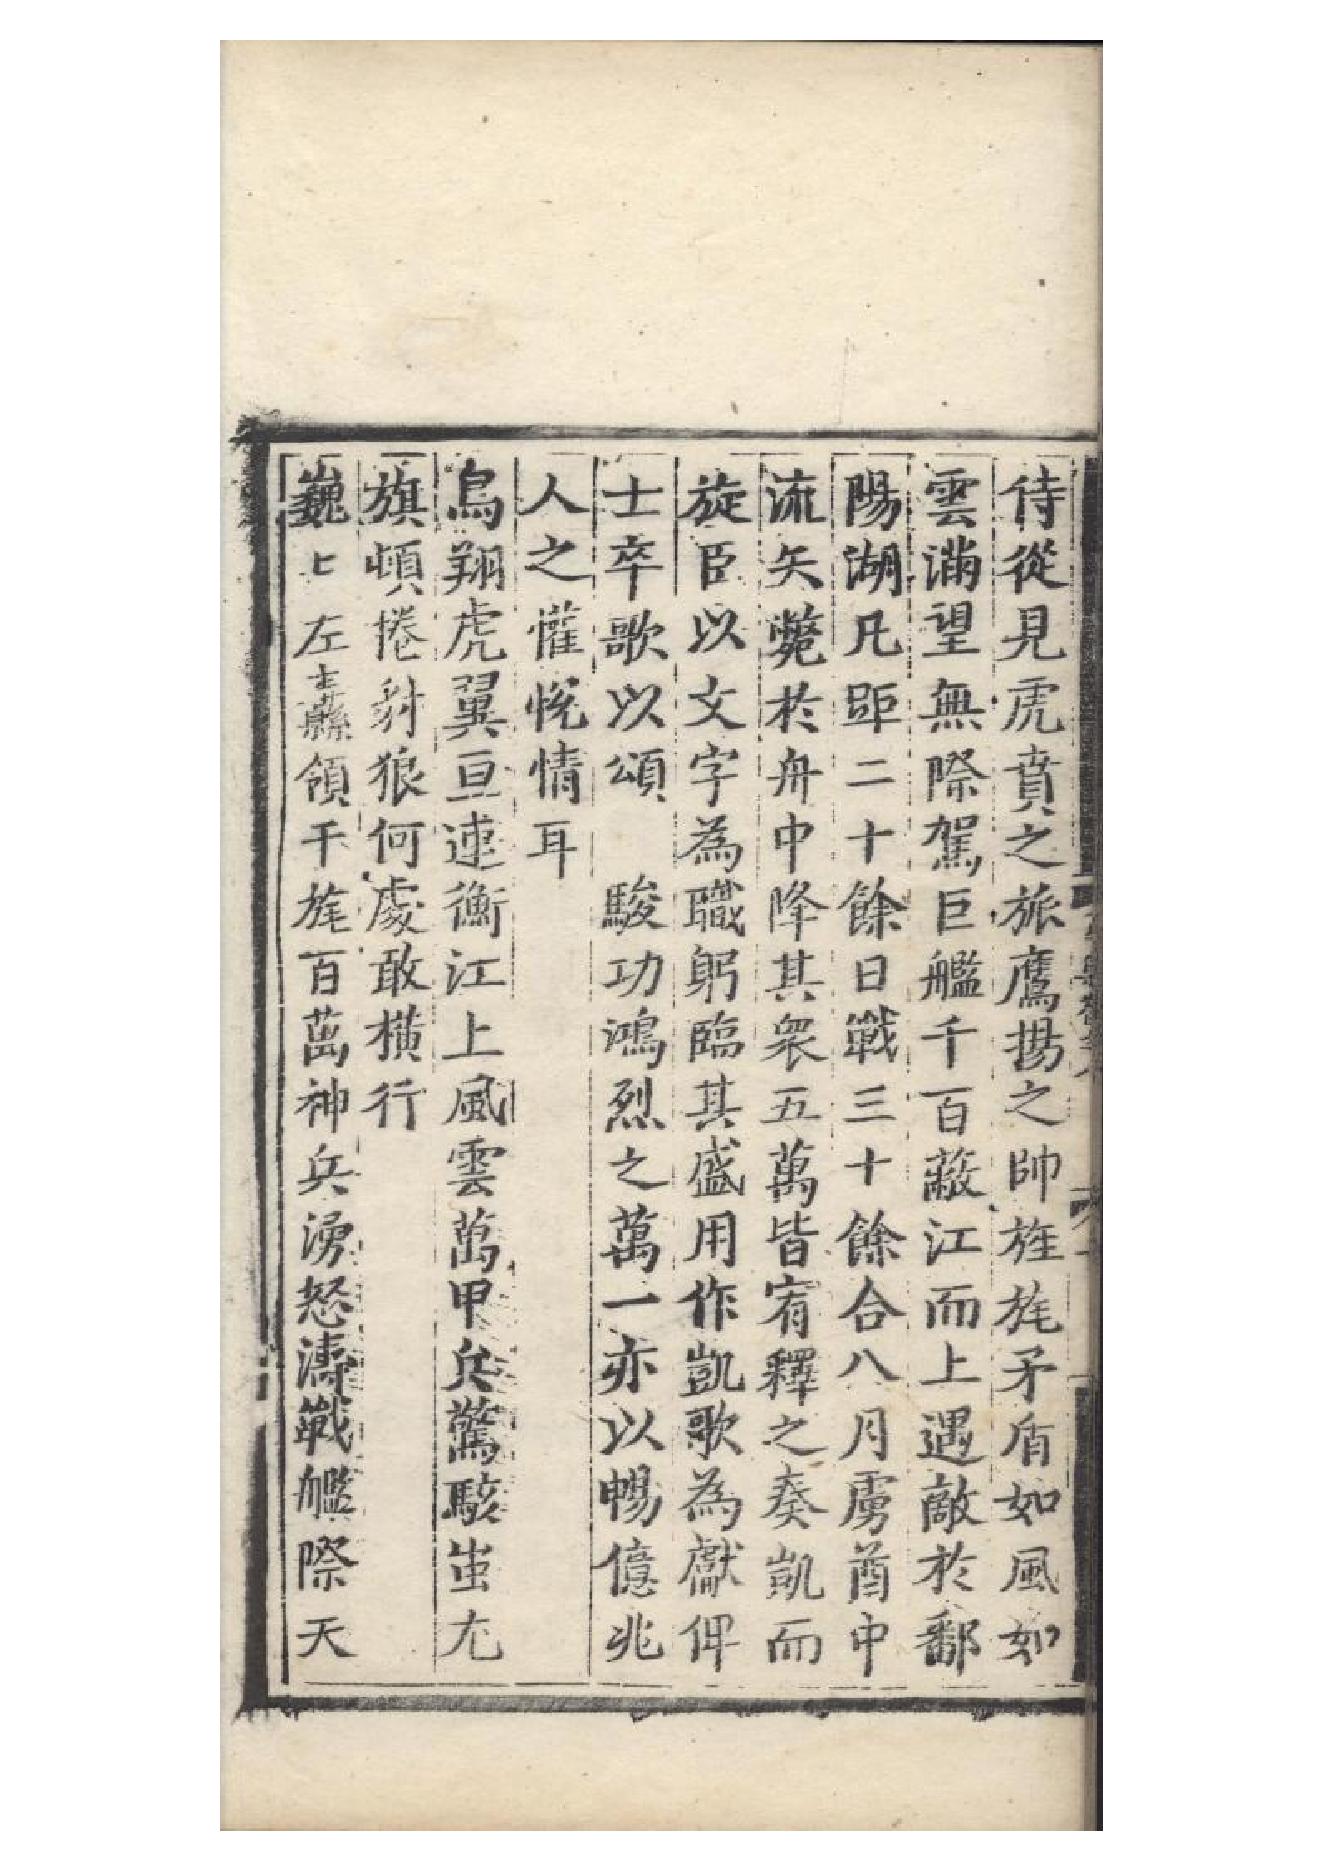 侍從見虎賁之旅鷹揚之帥旌旄矛盾如風如
雲滿望無際駕巨艦千百蔽江而上遇敵於鄱
陽湖凡距二十餘日戰三十餘合八月虜酋中
流矢斃於舟中降其衆五萬皆宥釋之奏凱而
旋臣以文字為職躬臨其盛用作凱歌為獻俾
士卒歌以頌　駿功鴻烈之萬一亦以暢億兆
人之懽悅情耳
鳥翔虎翼亘連衡江上風雲萬甲兵驚駭蚩尤
旗頓捲豺狼何處敢橫行
巍〻左纛領干旄百萬神兵湧怒濤戰艦際天